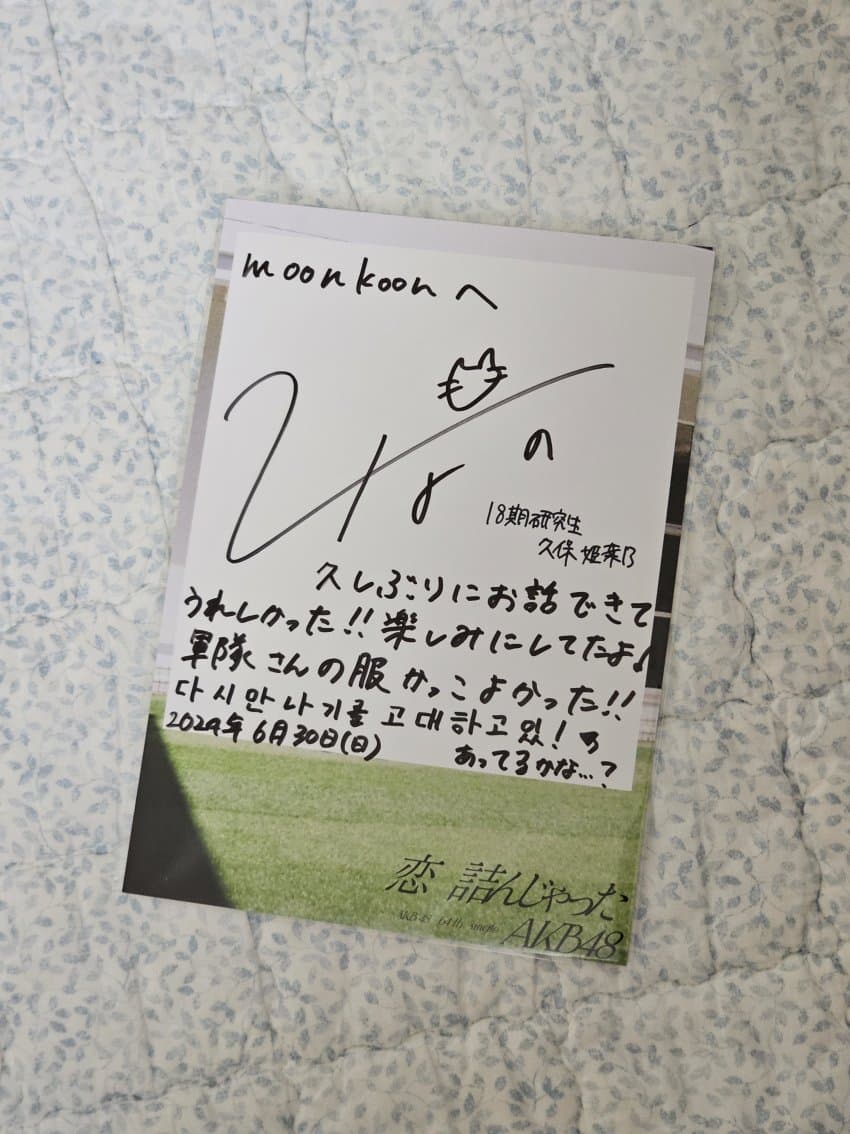 moonkoonへ
ひよの
18期研究生
久保姫菜乃
久しぶりにお話できて
うれしかった!!楽しみにしてたよ♪
軍隊さんの服かっこよかった!!
다시만나기를고대하고있!
2024年6月30日(日)
あってるかな…?
恋 詰んじゃった
AKB48 64th Single
AKB48